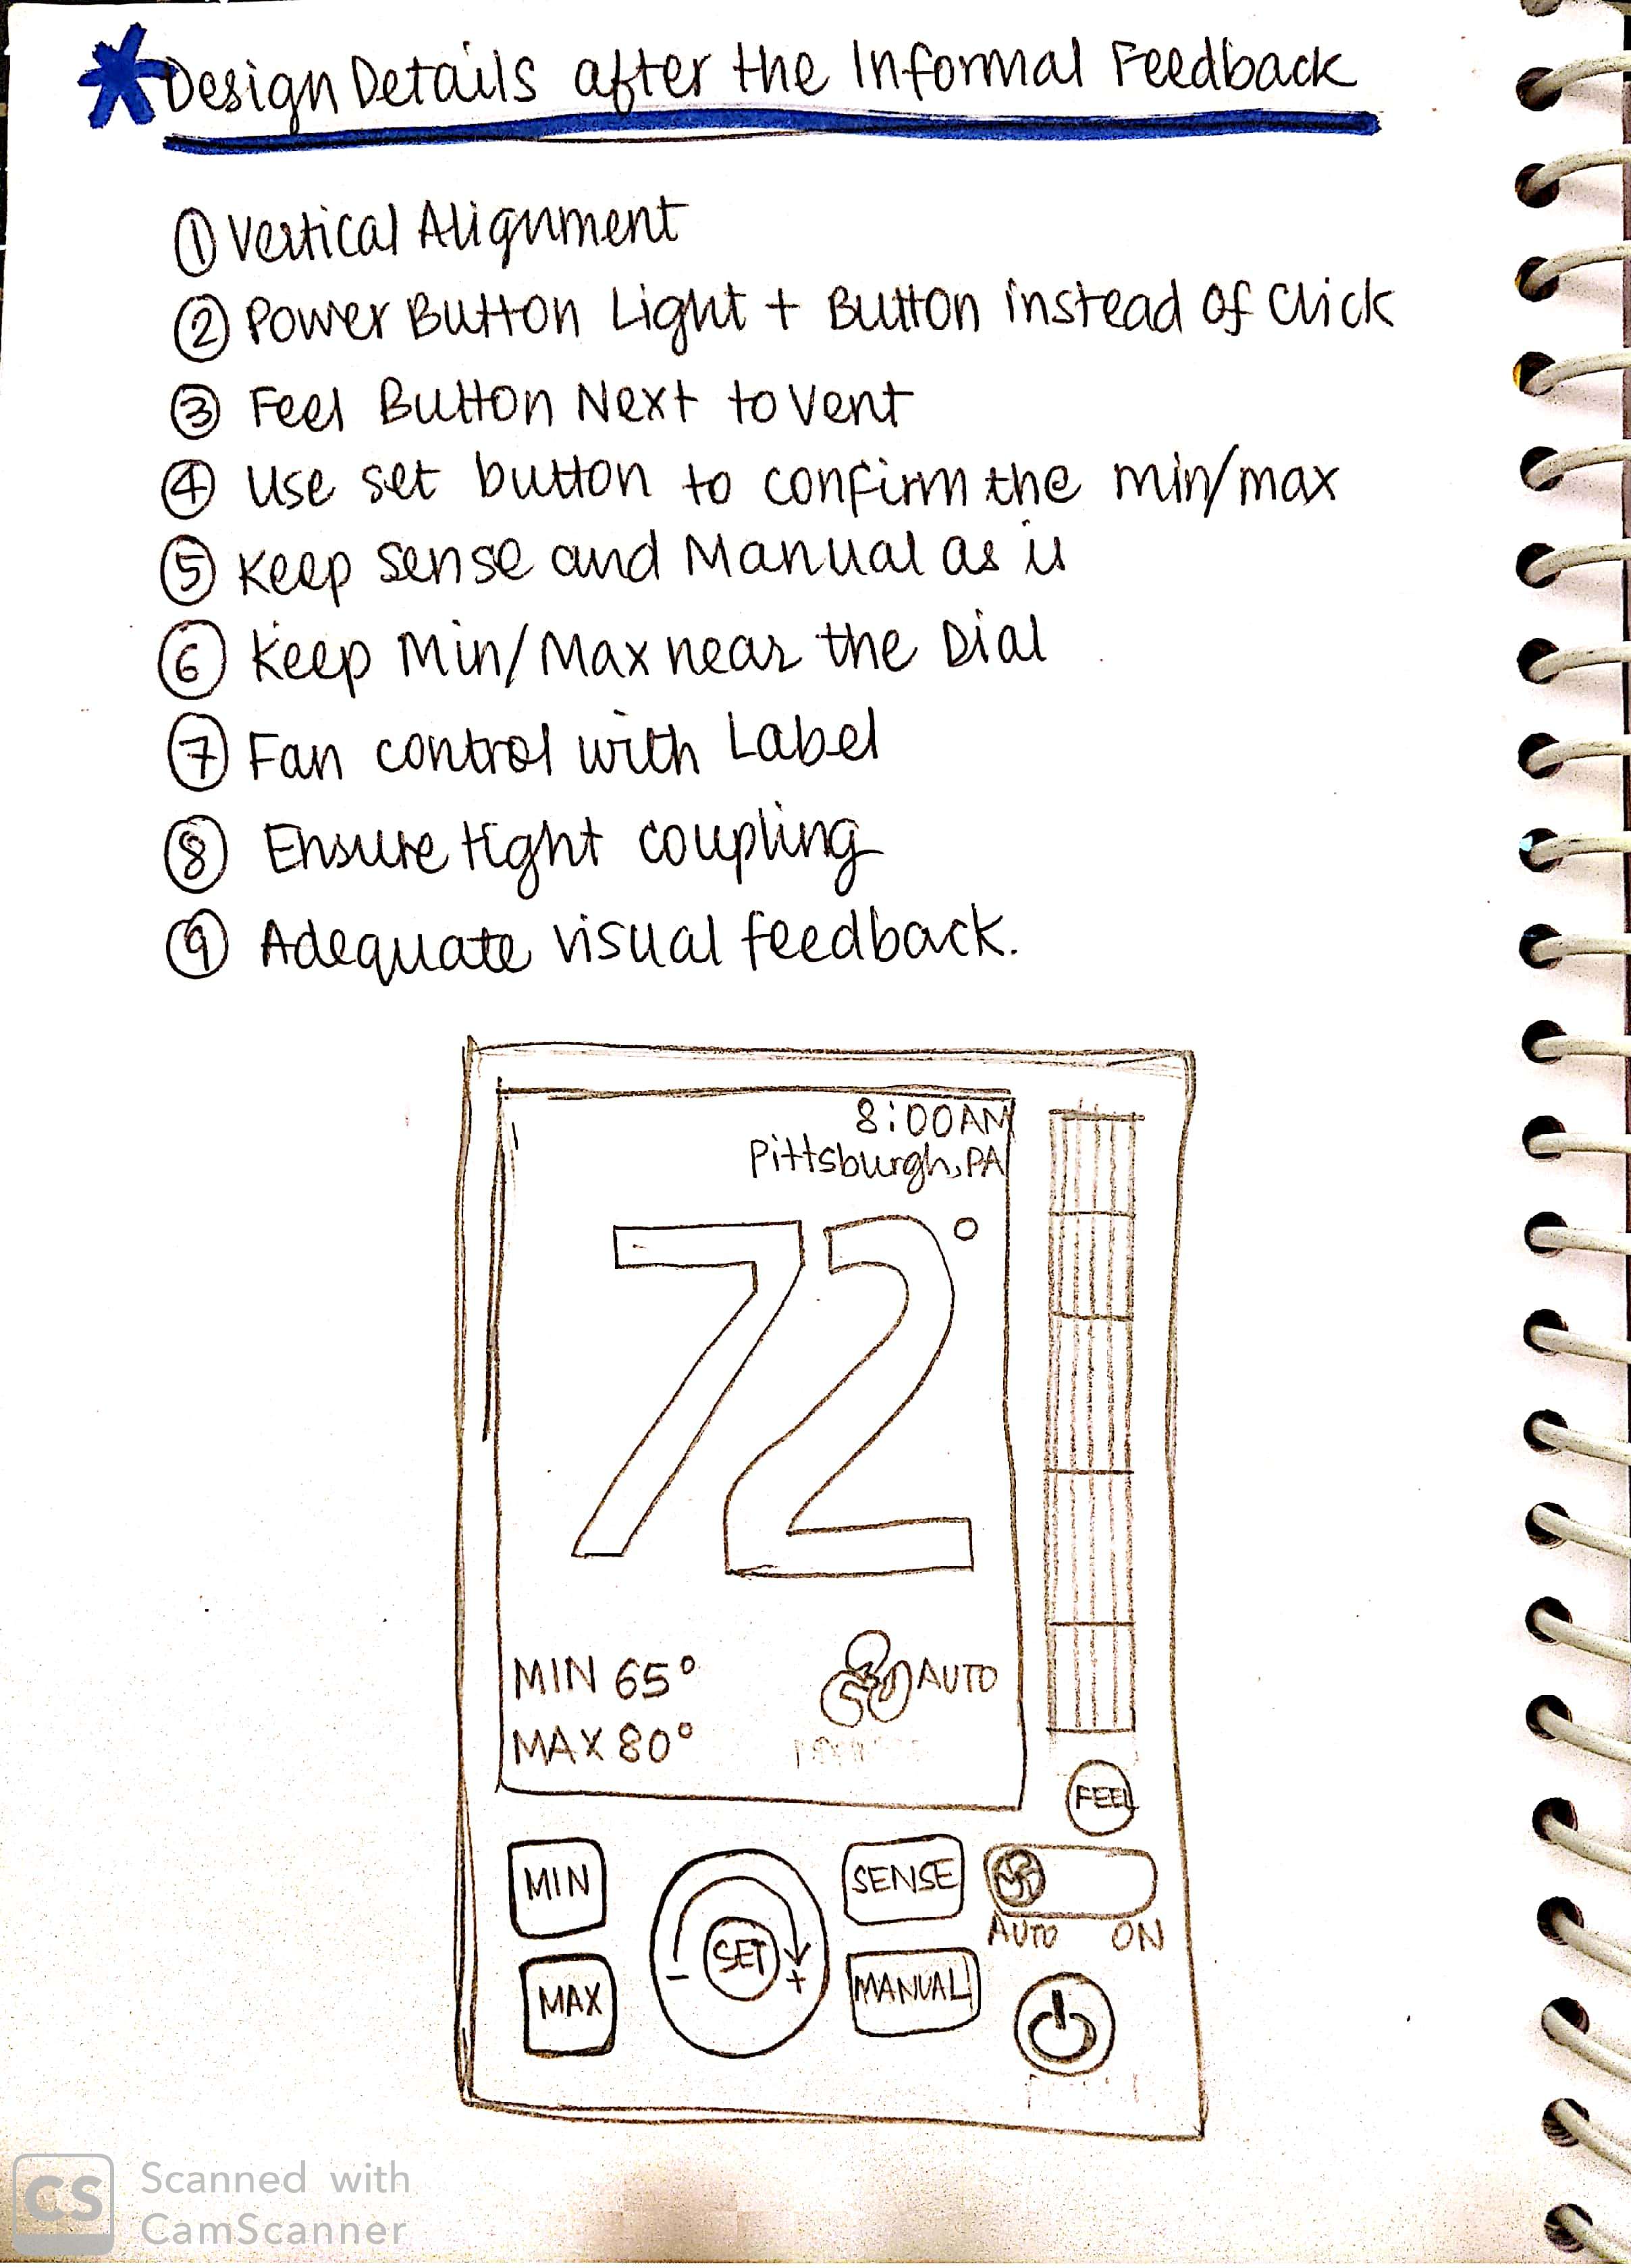 Design Details after the Informal Feedback
① Vertical Alignment
② Power Button Light + Button instead of Click
③ Feel Button Next to Vent
④ Use set button to confirm the min/max
⑤ Keep Sense and Manual as is
⑥ Keep Min/Max near the Dial
⑦ Fan control with Label
⑧ Ensure tight coupling
⑨ Adequate visual feedback.
8:00AM
Pittsburgh, PA
72°
MIN 65°
AUTO
MAX 80°
FEEL
MIN
SENSE
AUTO ON
SET
- +
MAX
MANUAL
CS
Scanned with
CamScanner